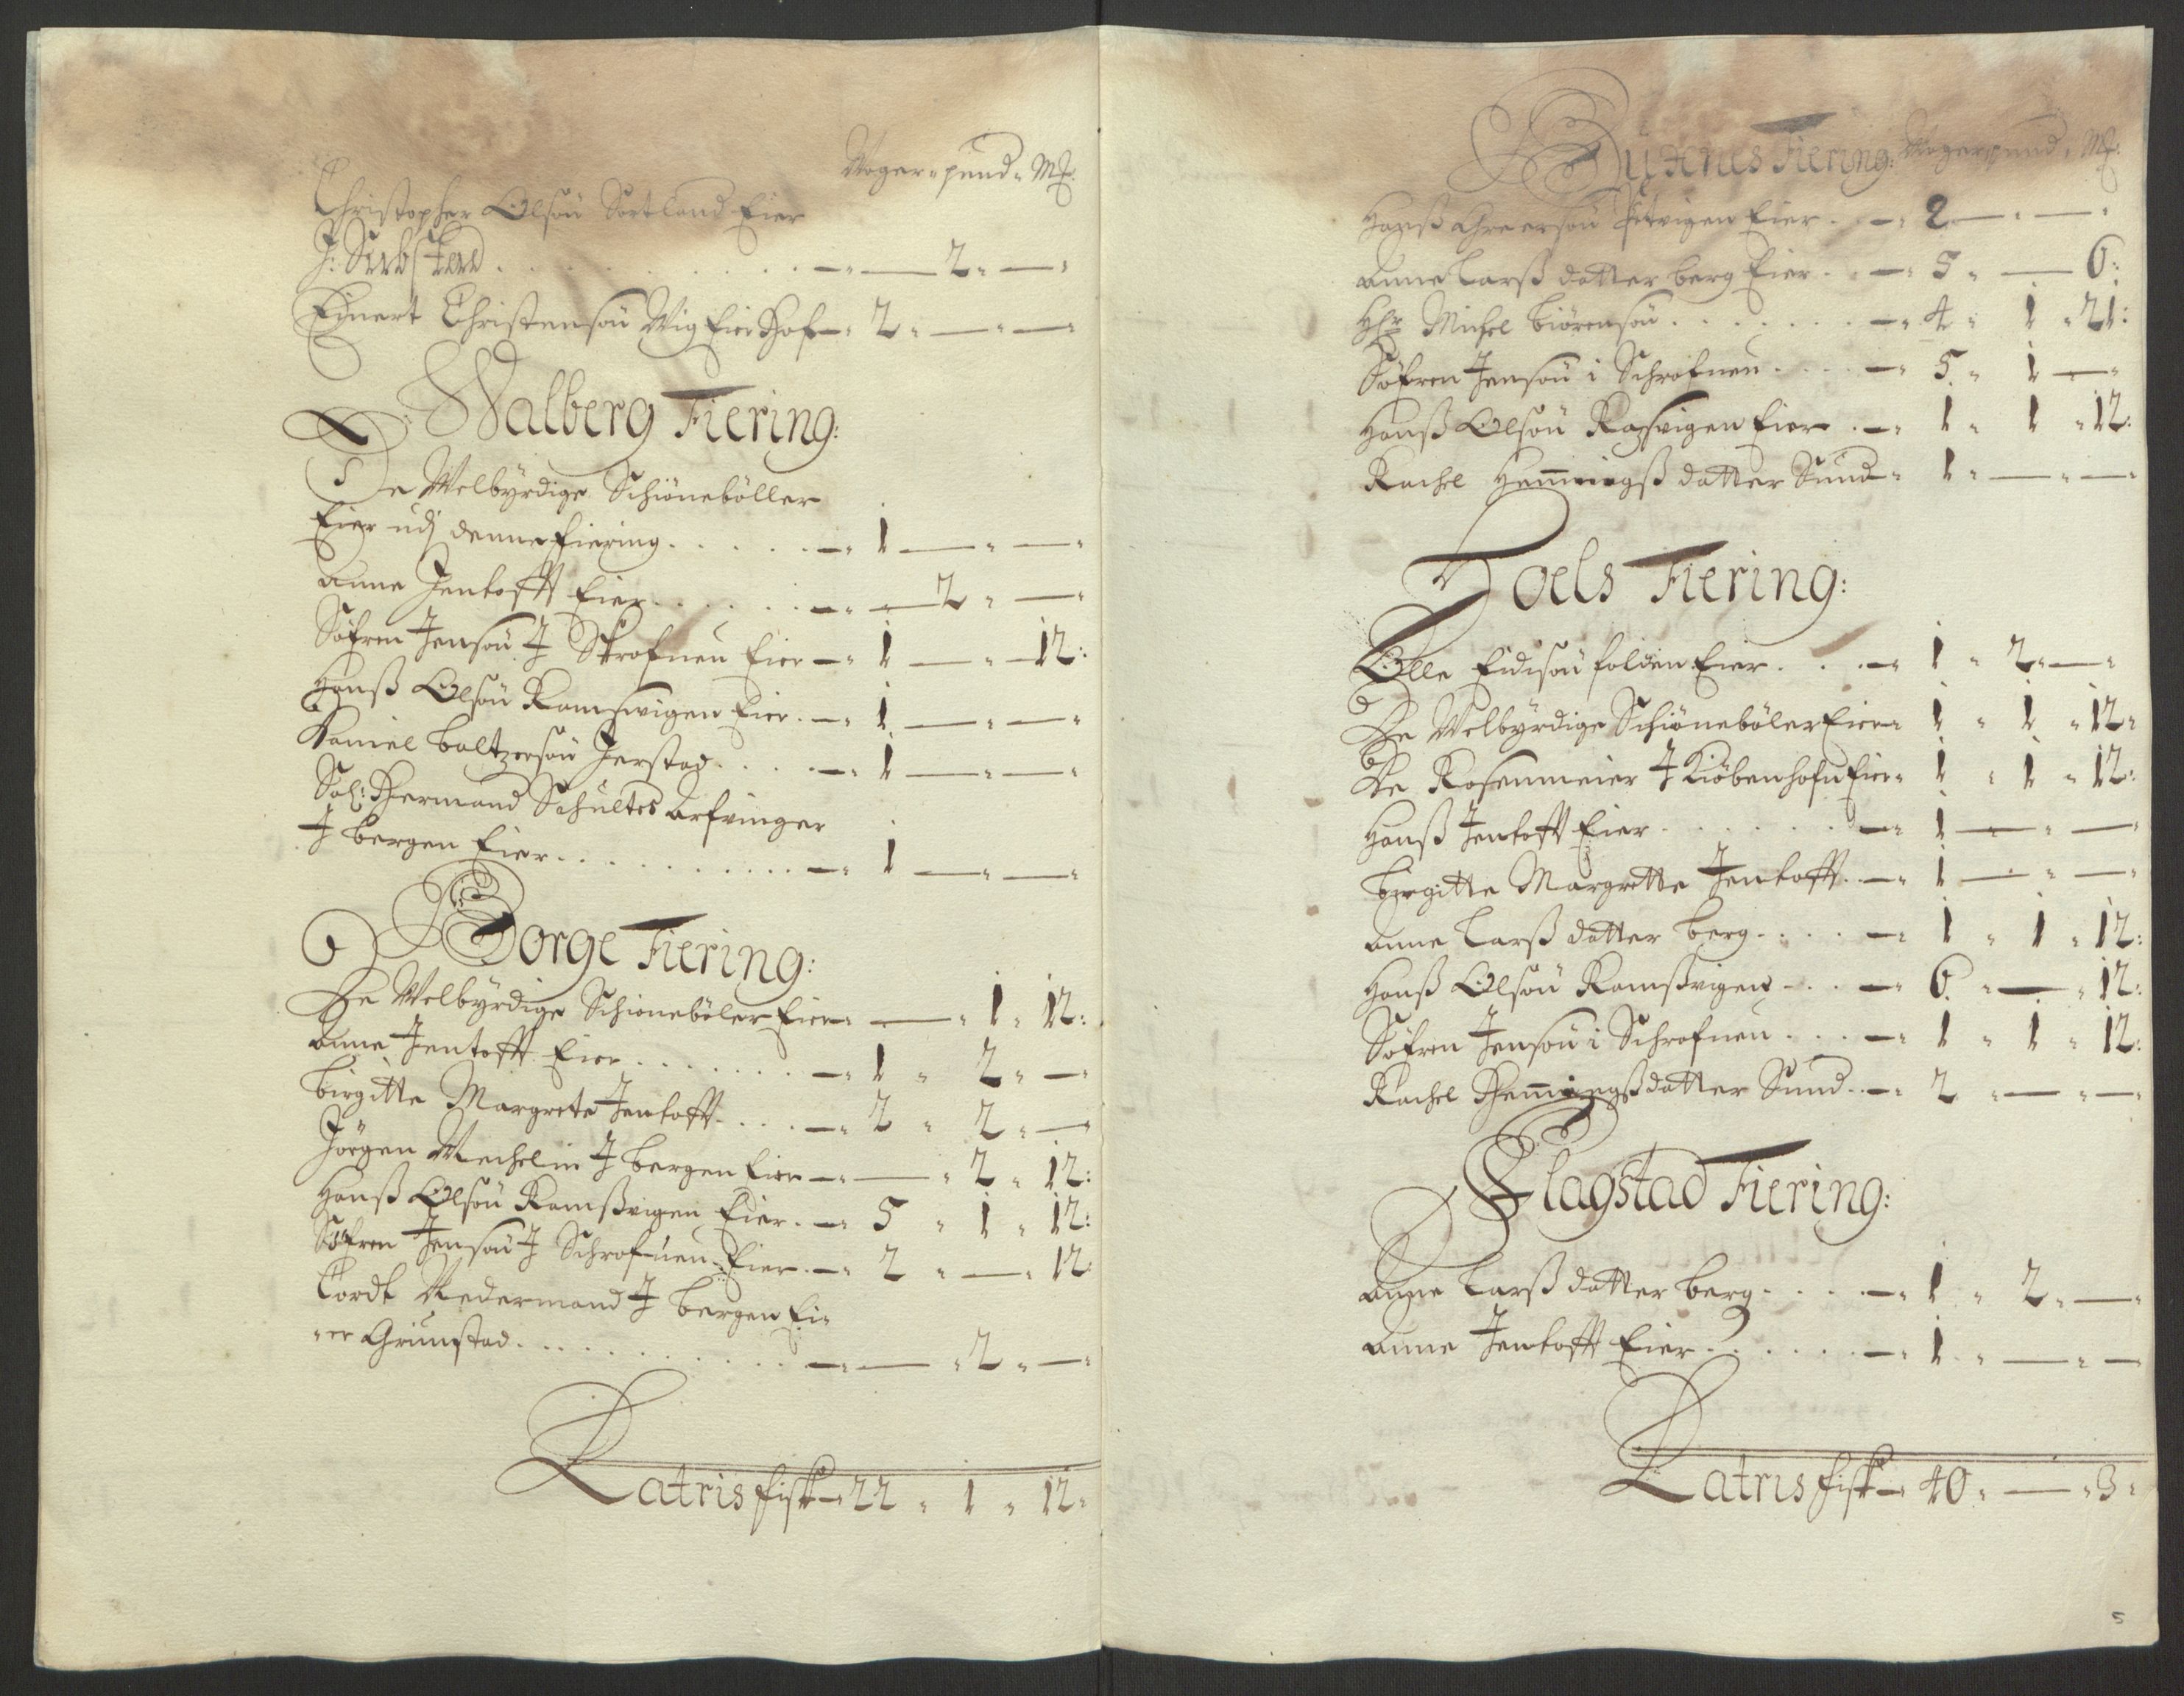 Woger " pund " M:
Christopher Olsøn Sortland Eier
J: . . . . . — " — 2 " — "
Einert Christensøn Wig Eier Hof — " 2 " — " — "
Walberg Fiering:
De Welbyrdige Schiönebøller
Eier udj denne fiering . . . . . — " 1 — " — "
Anne Jentofft Eier . . . . . — " — 2 " — "
Søfren Jensøn J Skrofuen Eier — " 1 — " — 12:
Hanß Olsøn Ramswigen Eier . — " 1 — " — "
Daniel Baltzersøn Jerstad . . . — " 1 — " — "
Sal: Hermand Schultes Arfvinger
J bergen Eier . . . . . . . . . . — " 1 — " — "
Borge Fiering:
De Welbyrdige Schiønebøler Eier " — " 1 " 12:
Anne Jentofft Eier . . . . . . . — " 1 " 2 " — "
Birgitte Margrete Jentofft . . . — " 2 " 2 " — "
Jørgen Mechelin J bergen Eier — " — " 2 " 12:
Hanß Olsøn Ramßvigen Eier . — " 5 " 1 " 12:
Søfren Jensøn J Schrofuen Eier . — " 2 " — " 12:
Cordt Medermand J bergen Ei "
" er Grimstad . . . . . . . . . . — " — " 2 " — "
Latris fisk — " 22 " 1 " 12 "
Buxnes Fiering: Woger pund " M:
Hanß Greersøn Petvigen Eier . — " 2 — " — "
Anne Larß datter berg Eier . — " 5 " — 6:
Hr Michel Biørensøn . . . . . . — " 4 " 1 " 21:
Søfren Jensøn i Schrofuen . . . . — " 5 " 1 — "
Hanß Olsøn Ramsvigen Eier . — " 1 " 1 " 12:
Rachel Hemingß datter Sund " 1 " — " — "
Hoels Fiering:
Olle Eidisøn folden Eier . . . — " 1 " 2 " — "
De Welbyrdige Schiønebøler Eier " 1 " 1 " 12 "
De Rosenmeier J Kiøbenhofn Eier " 1 " 1 " 12:
Hanß Jentofft Eier . . . . . . — " 1 — " — "
Birgitte Margrette Jentofft . — " 1 — " — "
Anne Larß datter berg . . . . — " 1 " 1 " 12:
Hanß Olsøn Ramßvigen . . . — " 6 " — " 12:
Søfren Jensøn i Schrofuen . . . — " 1 " 1 " 12:
Rachel Hemingßdatter Sund . — " 2 " — " — "
Flagstad Fiering:
Anne Larß datter berg . . . . — " 1 " 2 " — "
Anne Jentofft Eier . . . . . — " 1 " — " — "
Latris fisk — " 40 " — " 3 "
5